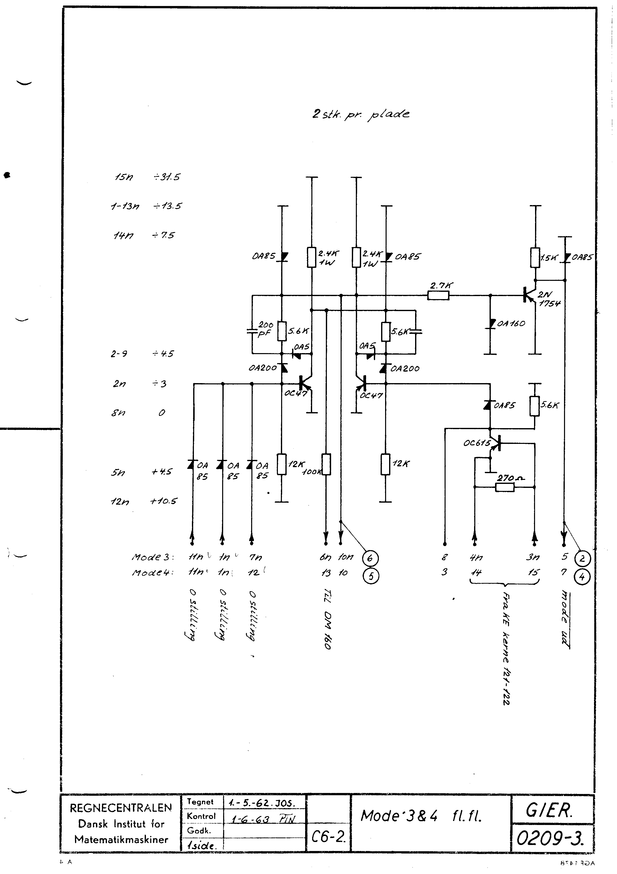 2 stk. pr. plade
15n ÷31.5
1-13n ÷13.5
14n ÷7.5
2-9 ÷4.5
2n ÷3
8n 0
5n +4.5
12n +10.5
OA85
2.4K
1W
2.4K
1W
OA85
1.5K
OA85
2.7K
2N
1754
200
pF
5.6K
5.6K
OA160
OA5
OA5
OA200
OA200
OC47
OC47
OA85
5.6K
OC615
OA
85
OA
85
OA
85
12K
100K
12K
270Ω
Mode 3: 11n 1n 7n 6n 10n 6 8 4n 3n 5 2
Mode 4: 11n 1n 12 13 10 5 3 14 15 7 4
0 stilling
0 stilling
0 stilling
Til DM 160
Fra KE kerne 121-122
mode ud
REGNECENTRALEN
Dansk Institut for
Matematikmaskiner
Tegnet 1.-5.-62. JOS.
Kontrol 1-6-63 PIN
Godk.
1 side.
C6-2.
Mode 3&4 fl.fl.
GIER.
0209-3.
A 4